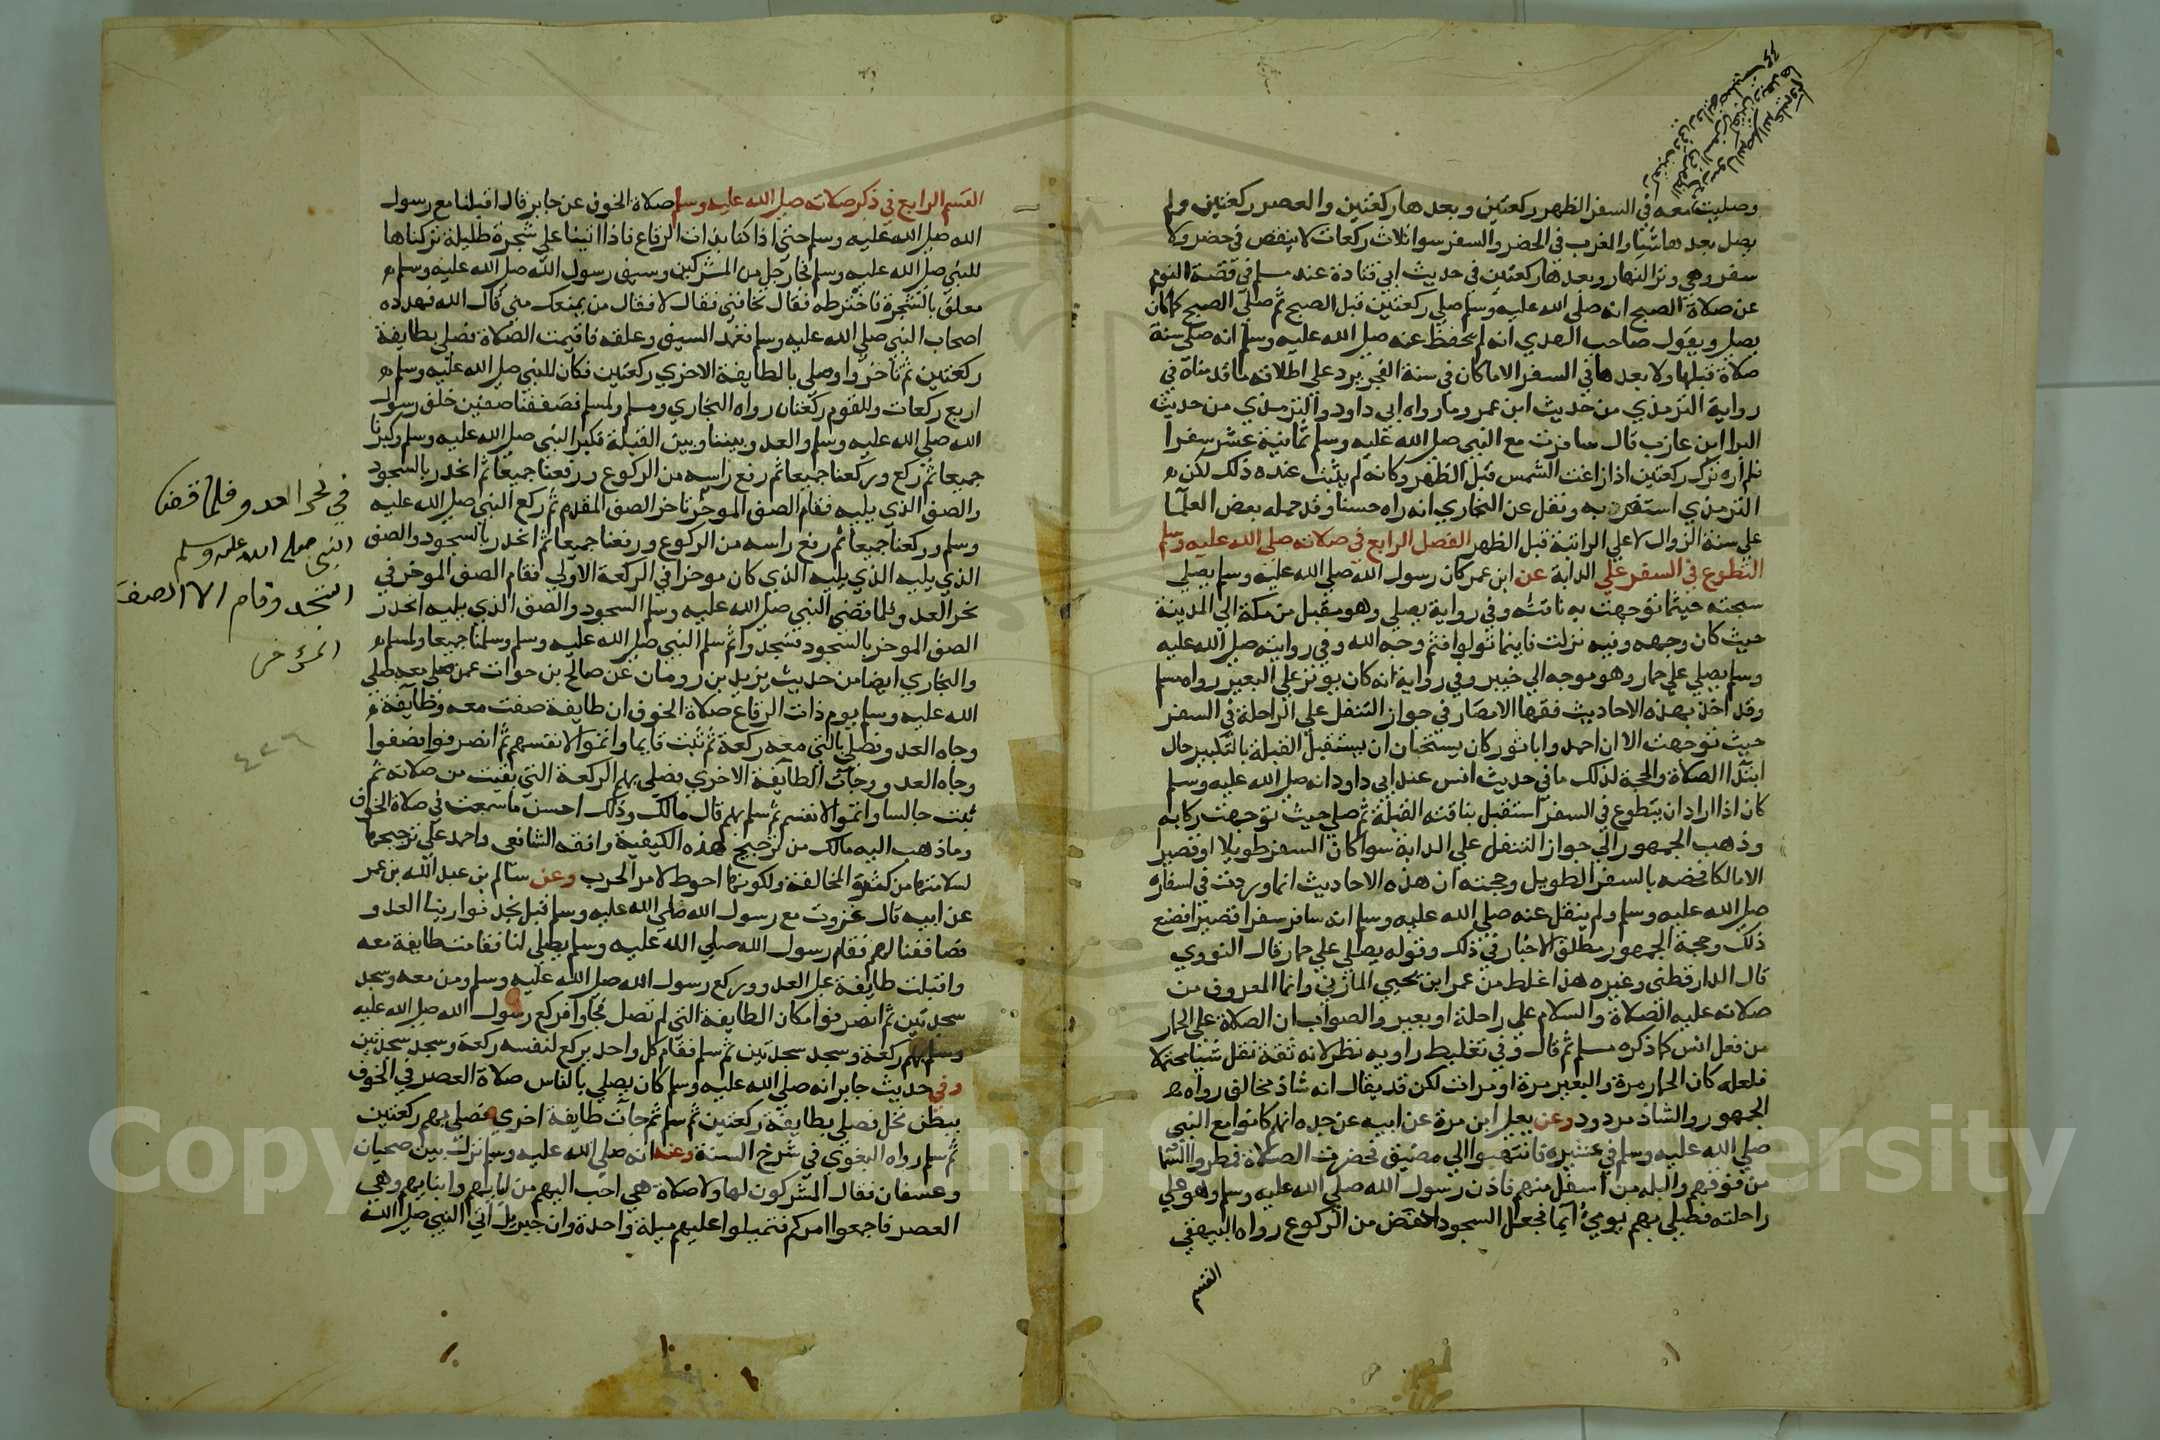 وصليت معه في السفر الظهر ركعتين وبعدها ركعتين والعصر ركعتين ولم
يصل بعدها شيا والمغرب في الحضر والسفر سوا ثلاث ركعات لا ينقص في حضر ولا
سفر وهي وتر النهار وبعدها ركعتين في حديث ابي قتادة عند مسلم في قصة النوم
عن صلاة الصبح انه صلى الله عليه وسلم صلى ركعتين قبل الصبح ثم صلى الصبح كما كان
يصلي ويقول صاحب الهدي انه لم يحفظ عنه صلى الله عليه وسلم انه صلى سنة
صلاة قبلها ولا بعدها في السفر الا ما كان في سنة الفجر يرد على اطلاقه ما قدمناه في
رواية الترمذي من حديث ابن عمر وما رواه ابي داود والترمذي من حديث
البرا ابن عازب قال سافرت مع النبي صلى الله عليه وسلم ثمانية عشر سفرا
فلم اره ترك ركعتين اذا زاغت الشمس قبل الظهر وكانه لم يثبت عنده ذلك لكن
الترمذي استغربه ونقل عن البخاري انه راه حسنا وقد حمله بعض العلما
على سنة الزوال لا على الراتبة قبل الظهر الفصل الرابع في صلاته صلى الله عليه وسلم
التطوع في السفر على الدابة عن ابن عمر كان رسول الله صلى الله عليه وسلم يصلي
سبحته حيثما توجهت به ناقته وفي رواية يصلي وهو مقبل من مكة الى المدينة
حيث كان وجهه وفيه نزلت فاينما تولوا فثم وجه الله وفي رواية صلى الله عليه
وسلم يصلي على حمار وهو موجه الى خيبر وفي رواية انه كان يوتر على البعير رواه مسلم
وقد اخذ بهذه الاحاديث فقها الامصار في جواز التنفل على الراحلة في السفر
حيث توجهت الا ان احمد وابا ثور كان يستحبان ان يستقبل القبلة بالتكبير حال
ابتدا الصلاة والحجة لذلك ما في حديث انس عند ابي داود انه صلى الله عليه وسلم
كان اذا اراد ان يتطوع في السفر استقبل بناقته القبلة ثم صلى حيث توجهت ركابه
وذهب الجمهور الى جواز التنفل على الدابة سوا كان السفر طويلا او قصيرا
الا مالكا فخصه بالسفر الطويل وحجته ان هذه الاحاديث انما وردت في اسفاره
صلى الله عليه وسلم ولم ينقل عنه صلى الله عليه وسلم انه سافر سفرا قصيرا فصنع
ذلك وحجة الجمهور مطلق الاخبار في ذلك وقوله يصلي على حمار قال النووي
قال الدارقطني وغيره هذا غلط من عمر ابن يحيى المازني وانما المعروف من
صلاته عليه الصلاة والسلام على راحلة او بعير والصواب ان الصلاة على الحمار
من فعل انس كما ذكره مسلم ثم قال وفي تغليط راويه نظر لانه ثقة نقل شيا محتملا
فلعله كان الحمار مرة والبعير مرة او مرات لكن قد يقال انه شاذ مخالف رواه
الجمهور والشاذ مردود وعن يعلى ابن مرة عن ابيه عن جده انهم كانوا مع النبي
صلى الله عليه وسلم في مسيره فانتهوا الى مضيق فحضرت الصلاة فمطروا السما
من فوقهم والبلة من اسفل منهم فاذن رسول الله صلى الله عليه وسلم وهو على
راحلته فصلى بهم يومي ايما فجعل السجود اخفض من الركوع رواه البيهقي
القسم
القسم الرابع في ذكر صلاته صلى الله عليه وسلم صلاة الخوف عن جابر قال اقبلنا مع رسول
الله صلى الله عليه وسلم حتى اذا كنا بذات الرقاع فاذا اتينا على شجرة ظليلة تركناها
للنبي صلى الله عليه وسلم فجا رجل من المشركين وسيف رسول الله صلى الله عليه وسلم
معلق بالشجرة فاخترطه فقال تخافني فقال لا فقال من يمنعك مني قال الله فهدده
اصحاب النبي صلى الله عليه وسلم فغمد السيف وعلقه فاقيمت الصلاة فصلى بطايفة
ركعتين ثم تاخروا وصلى بالطايفة الاخرى ركعتين فكان للنبي صلى الله عليه وسلم
اربع ركعات وللقوم ركعتان رواه البخاري ومسلم ولمسلم فصففنا صفين خلف رسول
الله صلى الله عليه وسلم والعدو بيننا وبين القبلة فكبر النبي صلى الله عليه وسلم وكبرنا
جميعا ثم ركع وركعنا جميعا ثم رفع راسه من الركوع ورفعنا جميعا ثم انحدر بالسجود
والصف الذي يليه فقام الصف الموخر تاخر الصف المقدم ثم ركع النبي صلى الله عليه
وسلم وركعنا جميعا ثم رفع راسه من الركوع ورفعنا جميعا ثم انحدر بالسجود والصف
الذي يليه الذي يليه الذي كان موخرا في الركعة الاولى فقام الصف الموخر في
نحر العدو فلما قضى النبي صلى الله عليه وسلم السجود والصف الذي يليه انحدر
الصف الموخر بالسجود فسجدوا ثم سلم النبي صلى الله عليه وسلم وسلمنا جميعا ولمسلم
والبخاري ايضا من حديث يزيد بن رومان عن صالح بن خوات عمن صلى معه صلى
الله عليه وسلم يوم ذات الرقاع صلاة الخوف ان طايفة صفت معه وطايفة
وجاه العدو فصلى بالتي معه ركعة ثم ثبت قايما واتموا لانفسهم ثم انصرفوا فصفوا
وجاه العدو وجات الطايفة الاخرى فصلى بهم الركعة التي بقيت من صلاته ثم
ثبت جالسا واتموا لانفسهم ثم سلم بهم قال مالك وذلك احسن ما سمعت في صلاة الخوف
وما ذهب اليه مالك من ترجيح هذه الكيفية وافقه الشافعي واحمد على ترجيحها
لسلامتها من كثرة المخالفة ولكونها احوط لامر الحرب وعن سالم بن عبد الله بن عمر
عن ابيه قال غزوت مع رسول الله صلى الله عليه وسلم قبل نجد فوازينا العدو
فصاففنا لهم فقام رسول الله صلى الله عليه وسلم يصلي لنا فقامت طايفة معه
واقبلت طايفة على العدو وركع رسول الله صلى الله عليه وسلم ومن معه وسجد
سجدتين ثم انصرفوا مكان الطايفة التي لم تصل فجاوا فركع رسول الله صلى الله عليه
وسلم بهم ركعة وسجد سجدتين ثم سلم فقام كل واحد يركع لنفسه ركعة وسجد سجدتين
وفي حديث جابر انه صلى الله عليه وسلم كان يصلي بالناس صلاة العصر في الخوف
ببطن نخل فصلى بطايفة ركعتين ثم سلم ثم جات طايفة اخرى فصلى بهم ركعتين
ثم سلم رواه البغوي في شرح السنة وعنه انه صلى الله عليه وسلم نزل بين ضجنان
وعسفان فقال المشركون لها ولا صلاة هي احب اليهم من ابايهم وابنايهم وهي
العصر فاجمعوا امركم فتميلوا عليهم ميلة واحدة وان جبريل اتى النبي صلى الله
في نحر العدو فلما قضى
النبي صلى الله عليه وسلم
السجد وقام الا الصف
المؤخر
٤٢٦
Copyright © King Saud University